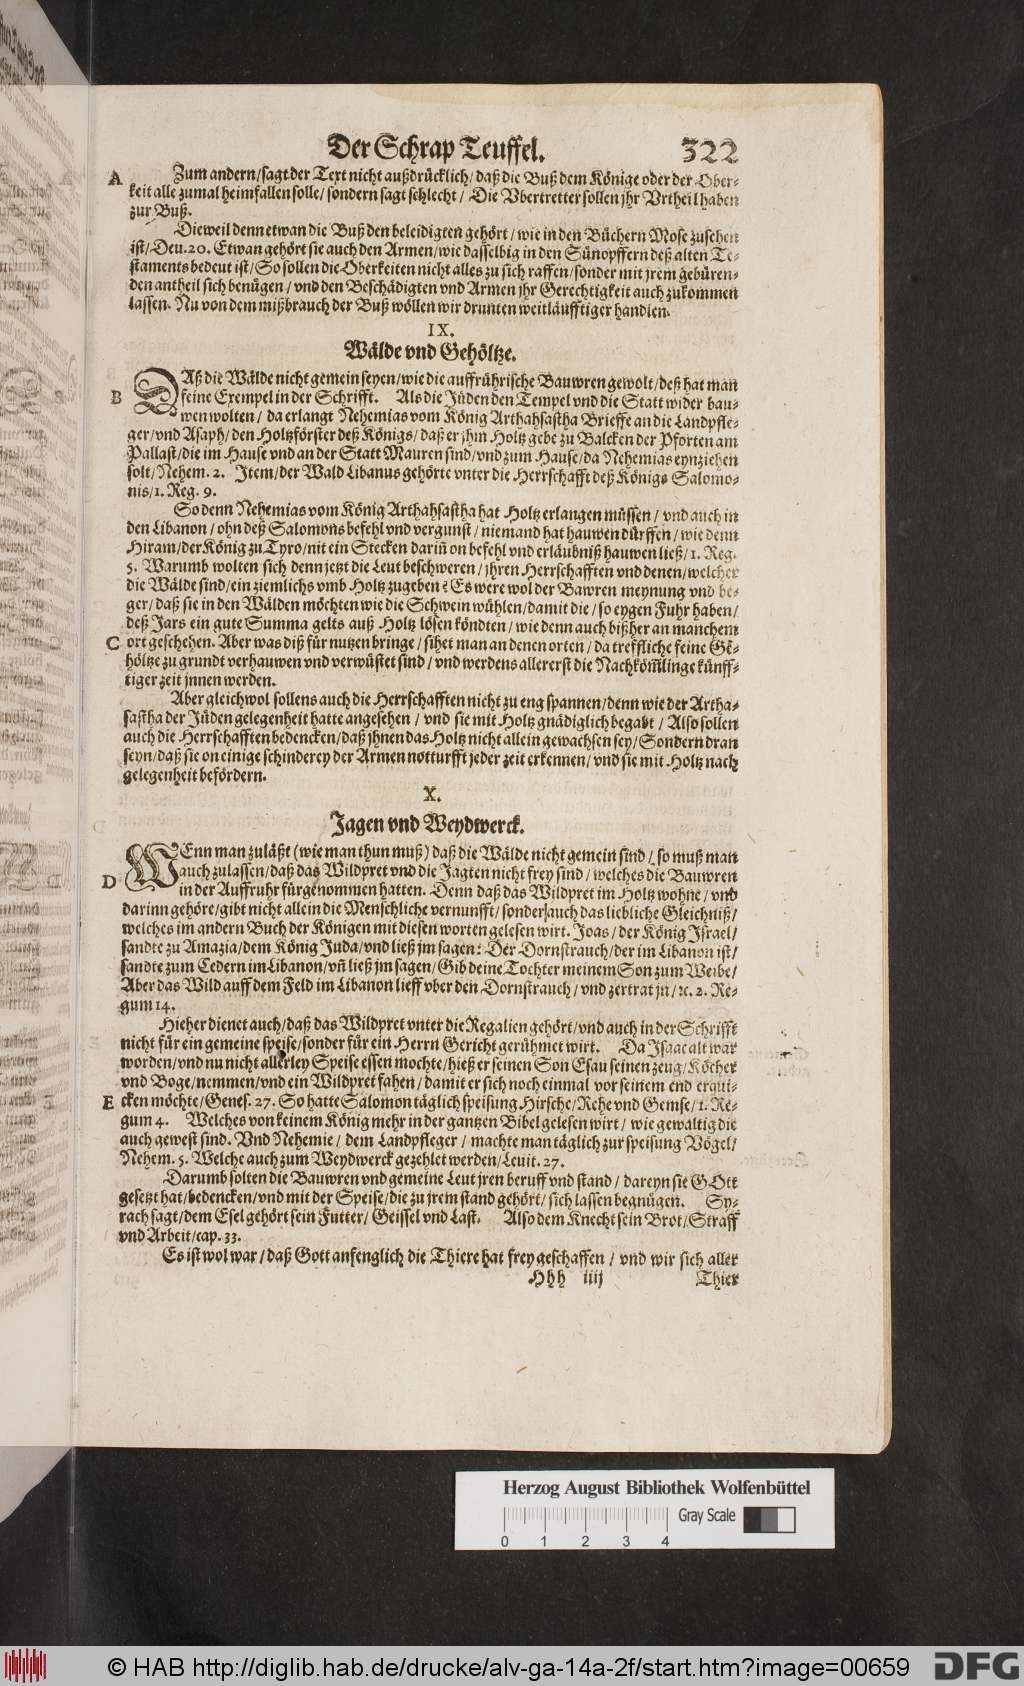 Der Schrap Teuffel. 322
A Zum andern/sagt der Text nicht außdrücklich/ daß die Buß dem Könige oder der Ober-
keit alle zumal heimfallen solle/ sondern sagt schlecht/ Die Vbertretter sollen jhr Vrtheil haben
zur Buß.
Dieweil denn etwan die Buß den beleidigten gehört/ wie in den Büchern Mose zusehen
ist/ Deu. 20. Etwan gehört sie auch den Armen/ wie dasselbig in den Sünopffern deß alten Te-
staments bedeut ist/ So sollen die Oberkeiten nicht alles zu sich raffen/ sonder mit jrem gebüren-
den antheil sich benügen/ vnd den Beschädigten vnd Armen jhr Gerechtigkeit auch zukommen
lassen. Nu von dem mißbrauch der Buß wöllen wir drunten weitläufftiger handlen.
IX.
Wälde vnd Gehöltze.
DAß die Wälde nicht gemein seyen/ wie die auffrührische Bauwren gewolt/ deß hat man
B feine Exempel in der Schrifft. Als die Jüden den Tempel vnd die Statt wider bau-
wen wolten/ da erlangt Nehemias vom König Arthahsastha Brieffe an die Landpfle-
ger/ vnd Asaph/ den Holtzförster deß Königs/ daß er jhm Holtz gebe zu Balcken der Pforten am
Pallast/ die im Hause vnd an der Statt Mauren sind/ vnd zum Hause/ da Nehemias eynziehen
solt/ Nehem. 2. Item/ der Wald Libanus gehörte vnter die Herrschafft deß Königs Salomo-
nis/ 1. Reg. 9.
So denn Nehemias vom König Arthahsastha hat Holtz erlangen müssen/ vnd auch in
den Libanon/ ohn deß Salomons befehl vnd vergunst/ niemand hat hauwen dürffen/ wie denn
Hiram/ der König zu Tyro/ nit ein Stecken dariñ on befehl vnd erläubniß hauwen ließ/ 1. Reg.
5. Warumb wolten sich denn jetzt die Leut beschweren/ jhren Herrschafften vnd denen/ welcher
die Wälde sind/ ein ziemlichs vmb Holtz zugeben? Es were wol der Bawren meynung vnd be-
ger/ daß sie in den Wälden möchten wie die Schwein wühlen/ damit die/ so eygen Fuhr haben/
deß Jars ein gute Summa gelts auß Holtz lösen köndten/ wie denn auch bißher an manchem
C ort geschehen. Aber was diß für nutzen bringe/ sihet man an denen orten/ da treffliche feine Ge-
höltze zu grundt verhauwen vnd verwüstet sind/ vnd werdens allererst die Nachköm̃linge künff-
tiger zeit jnnen werden.
Aber gleichwol sollens auch die Herrschafften nicht zu eng spannen/ denn wie der Artha-
sastha der Jüden gelegenheit hatte angesehen/ vnd sie mit Holtz gnädiglich begabt/ Also sollen
auch die Herrschafften bedencken/ daß jhnen das Holtz nicht allein gewachsen sey/ Sondern dran
seyn/ daß sie on einige schinderey der Armen notturfft jeder zeit erkennen/ vnd sie mit Holtz nach
gelegenheit befördern.
X.
Jagen vnd Weydwerck.
WEnn man zuläßt (wie man thun muß) daß die Wälde nicht gemein sind/ so muß man
D auch zulassen/ daß das Wildpret vnd die Jagten nicht frey sind/ welches die Bauwren
in der Auffruhr fürgenommen hatten. Denn daß das Wildpret im Holtz wohne/ vnd
darinn gehöre/ gibt nicht allein die Menschliche vernunfft/ sonder auch das liebliche Gleichniß/
welches im andern Buch der Königen mit diesen worten gelesen wirt. Joas/ der König Israel/
sandte zu Amazia/ dem König Juda/ vnd ließ jm sagen: Der Dornstrauch/ der im Libanon ist/
sandte zum Cedern im Libanon/ vñ ließ jm sagen/ Gib deine Tochter meinem Son zum Weibe/
Aber das Wild auff dem Feld im Libanon lieff vber den Dornstrauch/ vnd zertrat jn/ ꝛc. 2. Re-
gum 14.
Hieher dienet auch/ daß das Wildpret vnter die Regalien gehört/ vnd auch in der Schrifft
nicht für ein gemeine speise/ sonder für ein Herrn Gericht gerühmet wirt. Da Isaac alt war
worden/ vnd nu nicht allerley Speise essen mochte/ hieß er seinen Son Esau seinen zeug/ Köcher
vnd Boge/ nemmen/ vnd ein Wildpret fahen/ damit er sich noch einmal vor seinem end erqui-
E cken möchte/ Genes. 27. So hatte Salomon täglich speisung Hirsche/ Rehe vnd Gemse/ 1. Re-
gum 4. Welches von keinem König mehr in der gantzen Bibel gelesen wirt/ wie gewaltig die
auch gewest sind. Vnd Nehemie/ dem Landpfleger/ machte man täglich zur speisung Vögel/
Nehem. 5. Welche auch zum Weydwerck gezehlet werden/ Leuit. 27.
Darumb solten die Bauwren vnd gemeine Leut jren beruff vnd stand/ dareyn sie GOtt
gesetzt hat/ bedencken/ vnd mit der Speise/ die zu jrem stand gehört/ sich lassen begnügen. Sy-
rach sagt/ dem Esel gehört sein Futter/ Geissel vnd Last. Also dem Knecht sein Brot/ Straff
vnd Arbeit/ cap. 33.
Es ist wol war/ daß Gott anfenglich die Thiere hat frey geschaffen/ vnd wir sich aller
Hhh iiij Thier
Herzog August Bibliothek Wolfenbüttel
Gray Scale
0 1 2 3 4
© HAB http://diglib.hab.de/drucke/alv-ga-14a-2f/start.htm?image=00659
DFG